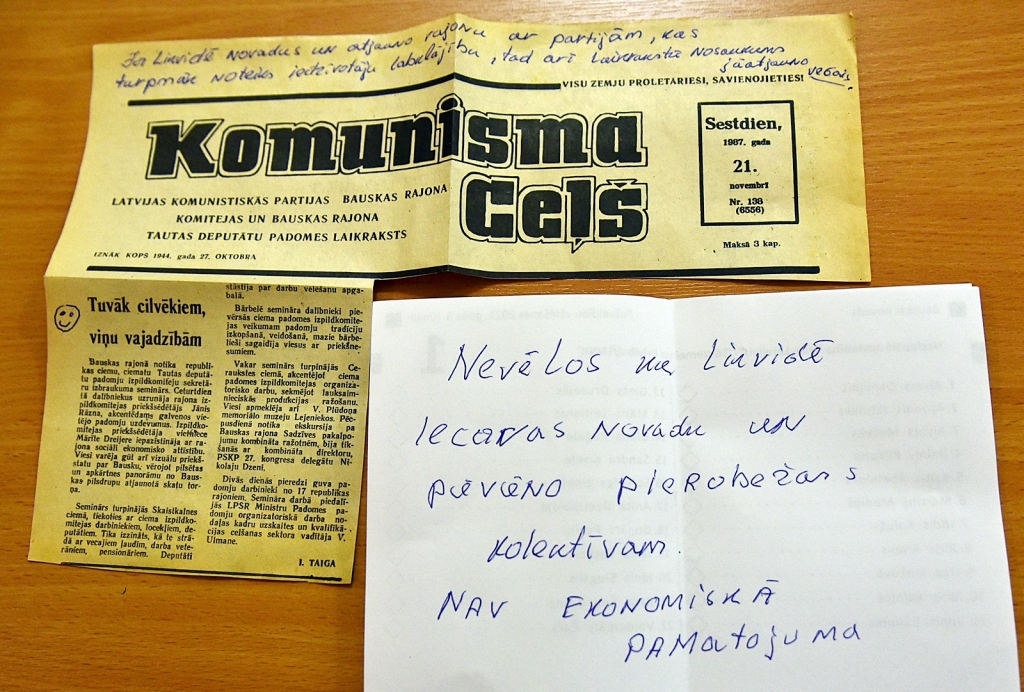 Ja Likvidē Novadus un atjauno rajonu ar partijām, kas
turpmāk noteiks iedzīvotāju labklājību, tad arī Laikraksta nosaukums
jāatjauno
vecais.
VISU ZEMJU PROLETARIEŠI, SAVIENOJIETIES!
Komunisma
Ceļš
LATVIJAS KOMUNISTISKĀS PARTIJAS BAUSKAS RAJONA
KOMITEJAS UN BAUSKAS RAJONA
TAUTAS DEPUTĀTU PADOMES LAIKRAKSTS
IZNĀK KOPŠ 1944. gada 27. OKTOBRA
Sestdien,
1987. gada
21.
novembrī
Nr. 138
(6556)
Maksā 3 kap.
Tuvāk cilvēkiem,
viņu vajadzībām
Bauskas rajonā notika republi-
kas ciemu, ciematu Tautas depu-
tātu padomju izpildkomiteju sekretā-
ru izbraukuma seminārs. Ceturtdien
tā dalībniekus uzrunāja rajona iz-
pildkomitejas priekšsēdētājs Jānis
Rāzna, akcentēdams galvenos vie-
tējo padomju uzdevumus. Izpildko-
mitejas priekšsēdētāja vietniece
Mārīte Dreijere iepazīstināja ar ra-
jona sociāli ekonomisko attīstību.
Viesi varēja gūt arī vizuālu priekš-
statu par Bausku, vērojot pilsētas
un apkārtnes panorāmu no Baus-
kas pilsdrupu atjaunotā skatu tor-
ņa.
Seminārs turpinājās Skaistkalnes
ciemā, tiekoties ar ciema izpildko-
mitejas darbiniekiem, locekļiem, de-
putātiem. Tika izzināts, kā te strā-
dā ar vecajiem ļaudīm, darba vete-
rāniem, pensionāriem. Deputāti
stāstīja par darbu vēlēšanu apga-
balā.
Bārbelē semināra dalībnieki pie-
vērsās ciema padomes izpildkomite-
jas veikumam padomju tradīciju
izkopšanā, veidošanā, mazie bārbe-
lieši sagaidīja viesus ar priekšne-
sumiem.
Vakar seminārs turpinājās Ce-
raukstes ciemā, akcentējot ciema
padomes izpildkomitejas organizato-
risko darbu, sekmējot lauksaim-
nieciskās produkcijas ražošanu.
Viesi apmeklēja arī V. Plūdoņa
memoriālo muzeju Lejeniekos. Pēc-
pusdienā notika ekskursija pa
Bauskas rajona Sadzīves pakalpo-
jumu kombināta ražotnēm, bija tik-
šanās ar kombināta direktoru,
PSKP 27. kongresa delegātu Ni-
kolaju Dzeni.
Divās dienās pieredzi guva pa-
domju darbinieki no 17 republikas
rajoniem. Semināra darbā piedalī-
jās LPSR Ministru Padomes pa-
domju organizatoriskā darba no-
daļas kadru uzskaites un kvalifikā-
cijas celšanas sektora vadītāja V.
Ulmane.
I. TAIGA
Nevēlos ka Likvidē
Iecavas Novadu un
pievieno pierobežas
kolektīvam.
NAV EKONOMISKĀ
PAMatojuma